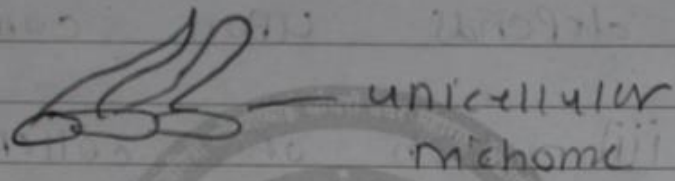 unicellular
trichome